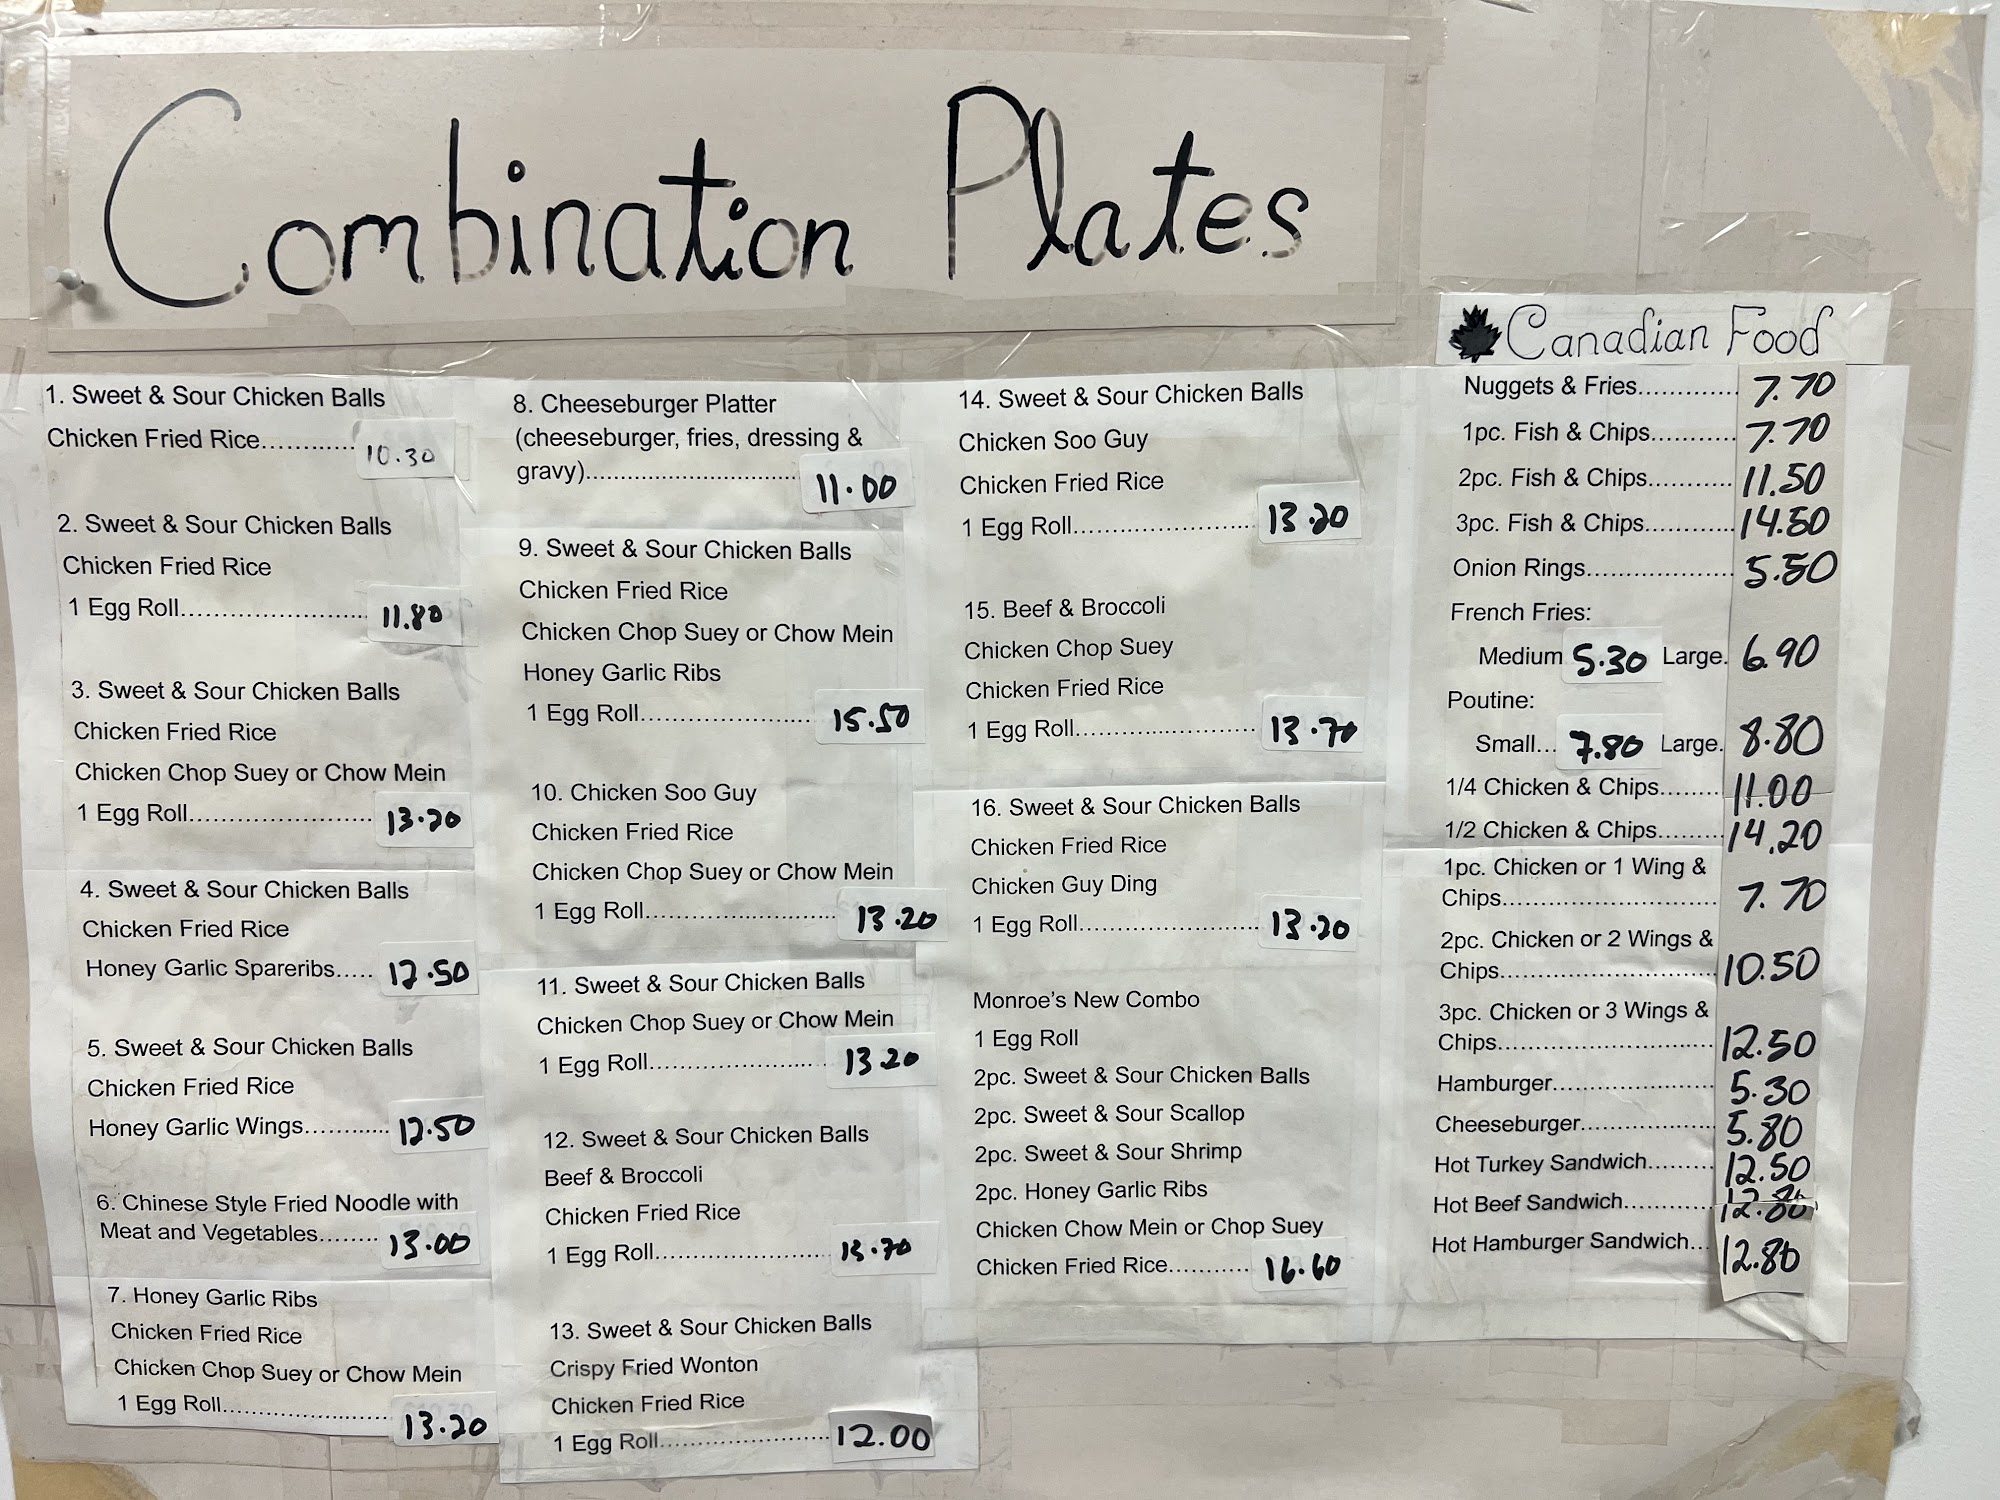 Combination Plates
1. Sweet & Sour Chicken Balls
Chicken Fried Rice............ 10.30
2. Sweet & Sour Chicken Balls
Chicken Fried Rice
1 Egg Roll........................... 11.80
3. Sweet & Sour Chicken Balls
Chicken Fried Rice
Chicken Chop Suey or Chow Mein
1 Egg Roll.......................... 13.20
4. Sweet & Sour Chicken Balls
Chicken Fried Rice
Honey Garlic Spareribs..... 12.50
5. Sweet & Sour Chicken Balls
Chicken Fried Rice
Honey Garlic Wings............ 12.50
6. Chinese Style Fried Noodle with
Meat and Vegetables........ 13.00
7. Honey Garlic Ribs
Chicken Fried Rice
Chicken Chop Suey or Chow Mein
1 Egg Roll........................ 13.20
8. Cheeseburger Platter
(cheeseburger, fries, dressing &
gravy)............................... 11.00
9. Sweet & Sour Chicken Balls
Chicken Fried Rice
Chicken Chop Suey or Chow Mein
Honey Garlic Ribs
1 Egg Roll......................... 15.50
10. Chicken Soo Guy
Chicken Fried Rice
Chicken Chop Suey or Chow Mein
1 Egg Roll........................... 13.20
11. Sweet & Sour Chicken Balls
Chicken Chop Suey or Chow Mein
1 Egg Roll.......................... 13 20
12. Sweet & Sour Chicken Balls
Beef & Broccoli
Chicken Fried Rice
1 Egg Roll.......................... 13.70
13. Sweet & Sour Chicken Balls
Crispy Fried Wonton
Chicken Fried Rice
1 Egg Roll......................... 12.00
14. Sweet & Sour Chicken Balls
Chicken Soo Guy
Chicken Fried Rice
1 Egg Roll.......................... 13.20
15. Beef & Broccoli
Chicken Chop Suey
Chicken Fried Rice
1 Egg Roll.......................... 13.70
16. Sweet & Sour Chicken Balls
Chicken Fried Rice
Chicken Guy Ding
1 Egg Roll.......................... 13.20
Monroe's New Combo
1 Egg Roll
2pc. Sweet & Sour Chicken Balls
2pc. Sweet & Sour Scallop
2pc. Sweet & Sour Shrimp
2pc. Honey Garlic Ribs
Chicken Chow Mein or Chop Suey
Chicken Fried Rice........... 16.60
Canadian Food
Nuggets & Fries.............. 7.70
1pc. Fish & Chips........... 7.70
2pc. Fish & Chips........... 11.50
3pc. Fish & Chips........... 14.50
Onion Rings.................... 5.50
French Fries:
Medium 5.30 Large. 6.90
Poutine:
Small... 7.80 Large. 8.80
1/4 Chicken & Chips....... 11.00
1/2 Chicken & Chips........ 14.20
1pc. Chicken or 1 Wing &
Chips.............................. 7.70
2pc. Chicken or 2 Wings &
Chips.............................. 10.50
3pc. Chicken or 3 Wings &
Chips.............................. 12.50
Hamburger...................... 5.30
Cheeseburger.................. 5.80
Hot Turkey Sandwich......... 12.50
Hot Beef Sandwich............ 12.80
Hot Hamburger Sandwich... 12.80